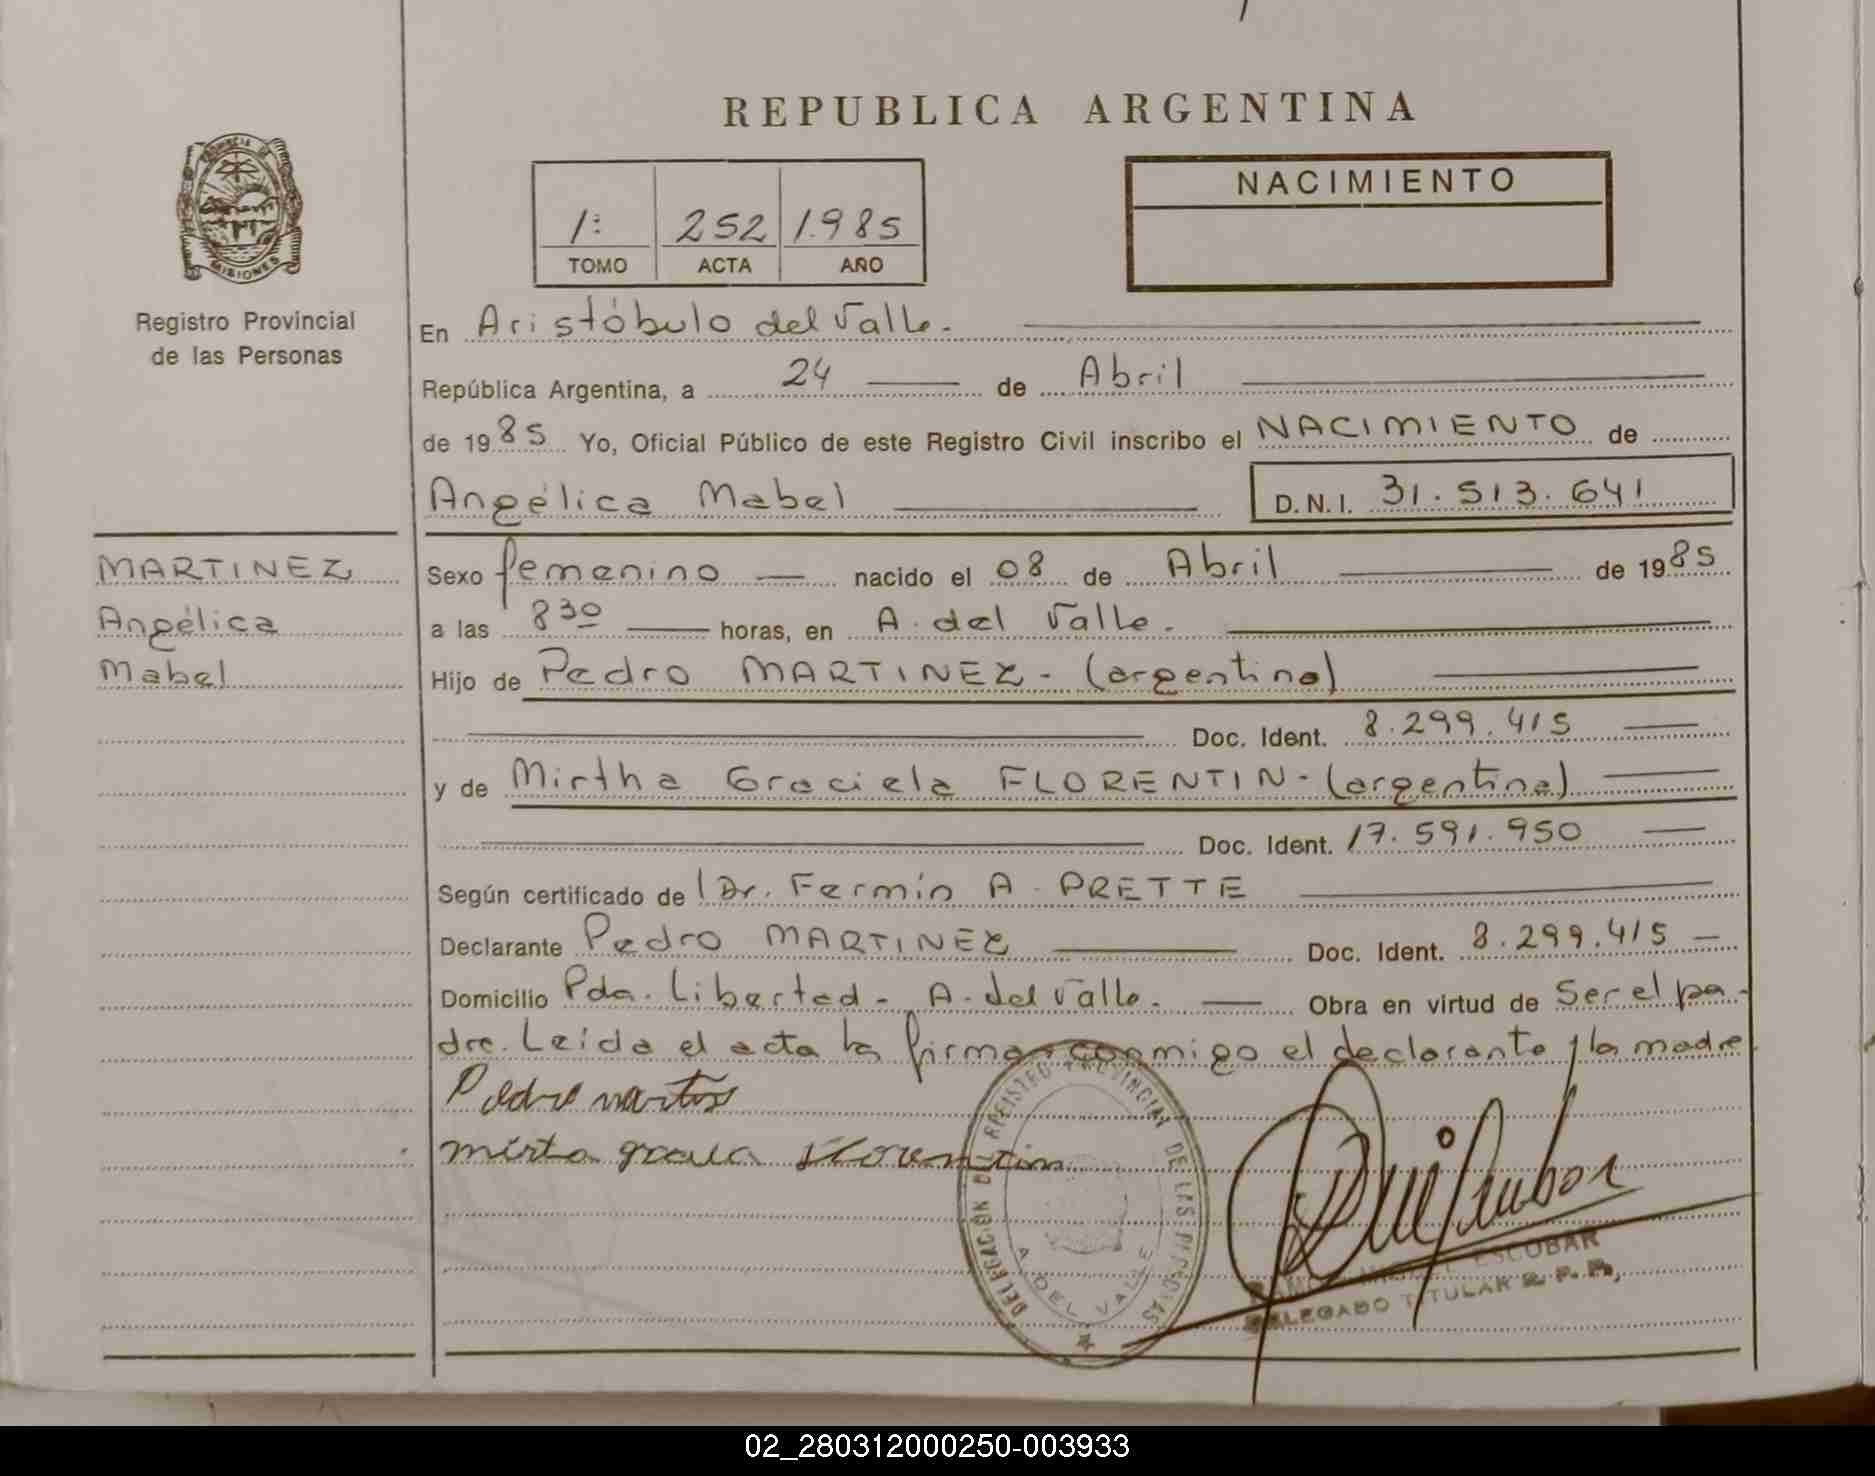 REPUBLICA ARGENTINA
PROVINCIA DE
MISIONES
Registro Provincial
de las Personas
1º 252 1.985
TOMO ACTA AÑO
NACIMIENTO
En Aristóbulo del Valle.
República Argentina, a 24 de Abril
de 1985 Yo, Oficial Público de este Registro Civil inscribo el NACIMIENTO de
Angélica Mabel D.N.I. 31.513.641
MARTINEZ
Angélica
Mabel
Sexo femenino nacido el 08 de Abril de 1985
a las 8 30 horas, en A. del Valle.
Hijo de Pedro MARTINEZ - (argentino)
Doc. Ident. 8.299.415
y de Mirtha Graciela FLORENTIN - (argentina)
Doc. Ident. 17.591.950
Según certificado de Dr. Fermín A. PRETTE
Declarante Pedro MARTINEZ Doc. Ident. 8.299.415
Domicilio Pda. Libertad - A. del Valle. Obra en virtud de Ser el pa-
dre. Leída el acta la firman conmigo el declarante y la madre
Pedro
mirta
DELEGACIÓN DEL REGISTRO PROVINCIAL DE LAS PERSONAS
A. DEL VALLE
RAMON MIGUEL ESCOBAR
DELEGADO TITULAR R. P. P.
02_280312000250-003933